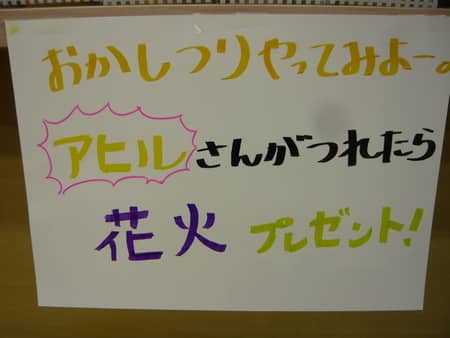 おかしつりやってみよー。
アヒルさんがつれたら
花火プレゼント!